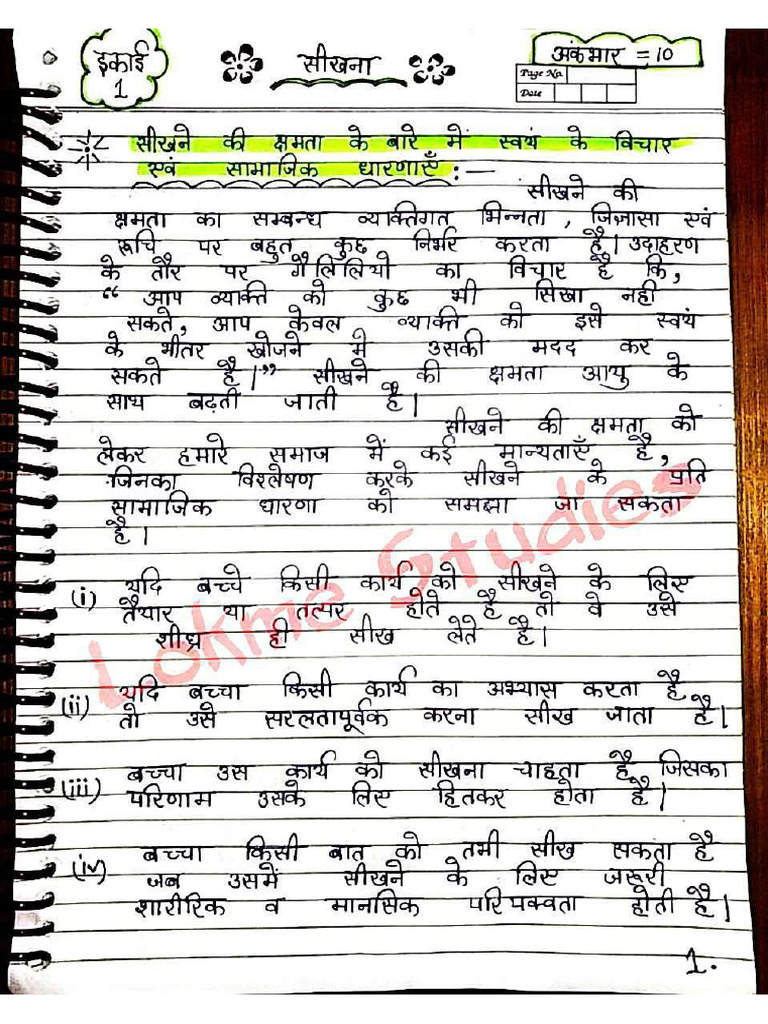 इकाई 1
सीखना
अंकभार = 10
Page No.
Date
सीखने की क्षमता के बारे में स्वयं के विचार
एवं सामाजिक धारणाएँ :—
सीखने की
क्षमता का सम्बन्ध व्यक्तिगत भिन्नता, जिज्ञासा एवं
रूचि पर बहुत कुछ निर्भर करता है। उदाहरण
के तौर पर गैलिलियो का विचार है कि,
“ आप व्यक्ति को कुछ भी सिखा नही
सकते, आप केवल व्यक्ति को इसे स्वयं
के भीतर खोजने मे उसकी मदद कर
सकते है।” सीखने की क्षमता आयु के
साथ बढ़ती जाती है।
सीखने की क्षमता को
लेकर हमारे समाज में कई मान्यताएँ है,
जिनका विश्लेषण करके सीखने के प्रति
सामाजिक धारणा को समझा जा सकता
है।
(i) यदि बच्चे किसी कार्य को सीखने के लिए
तैयार या तत्पर होते है तो वे उसे
शीघ्र ही सीख लेते है।
(ii) यदि बच्चा किसी कार्य का अभ्यास करता है
तो उसे सरलतापूर्वक करना सीख जाता है।
(iii) बच्चा उस कार्य को सीखना चाहता है जिसका
परिणाम उसके लिए हितकर होता है।
(iv) बच्चा किसी बात को तभी सीख सकता है
जब उसमें सीखने के लिए जरूरी
शारीरिक व मानसिक परिपक्वता होती है।
Lokme Studies
1.